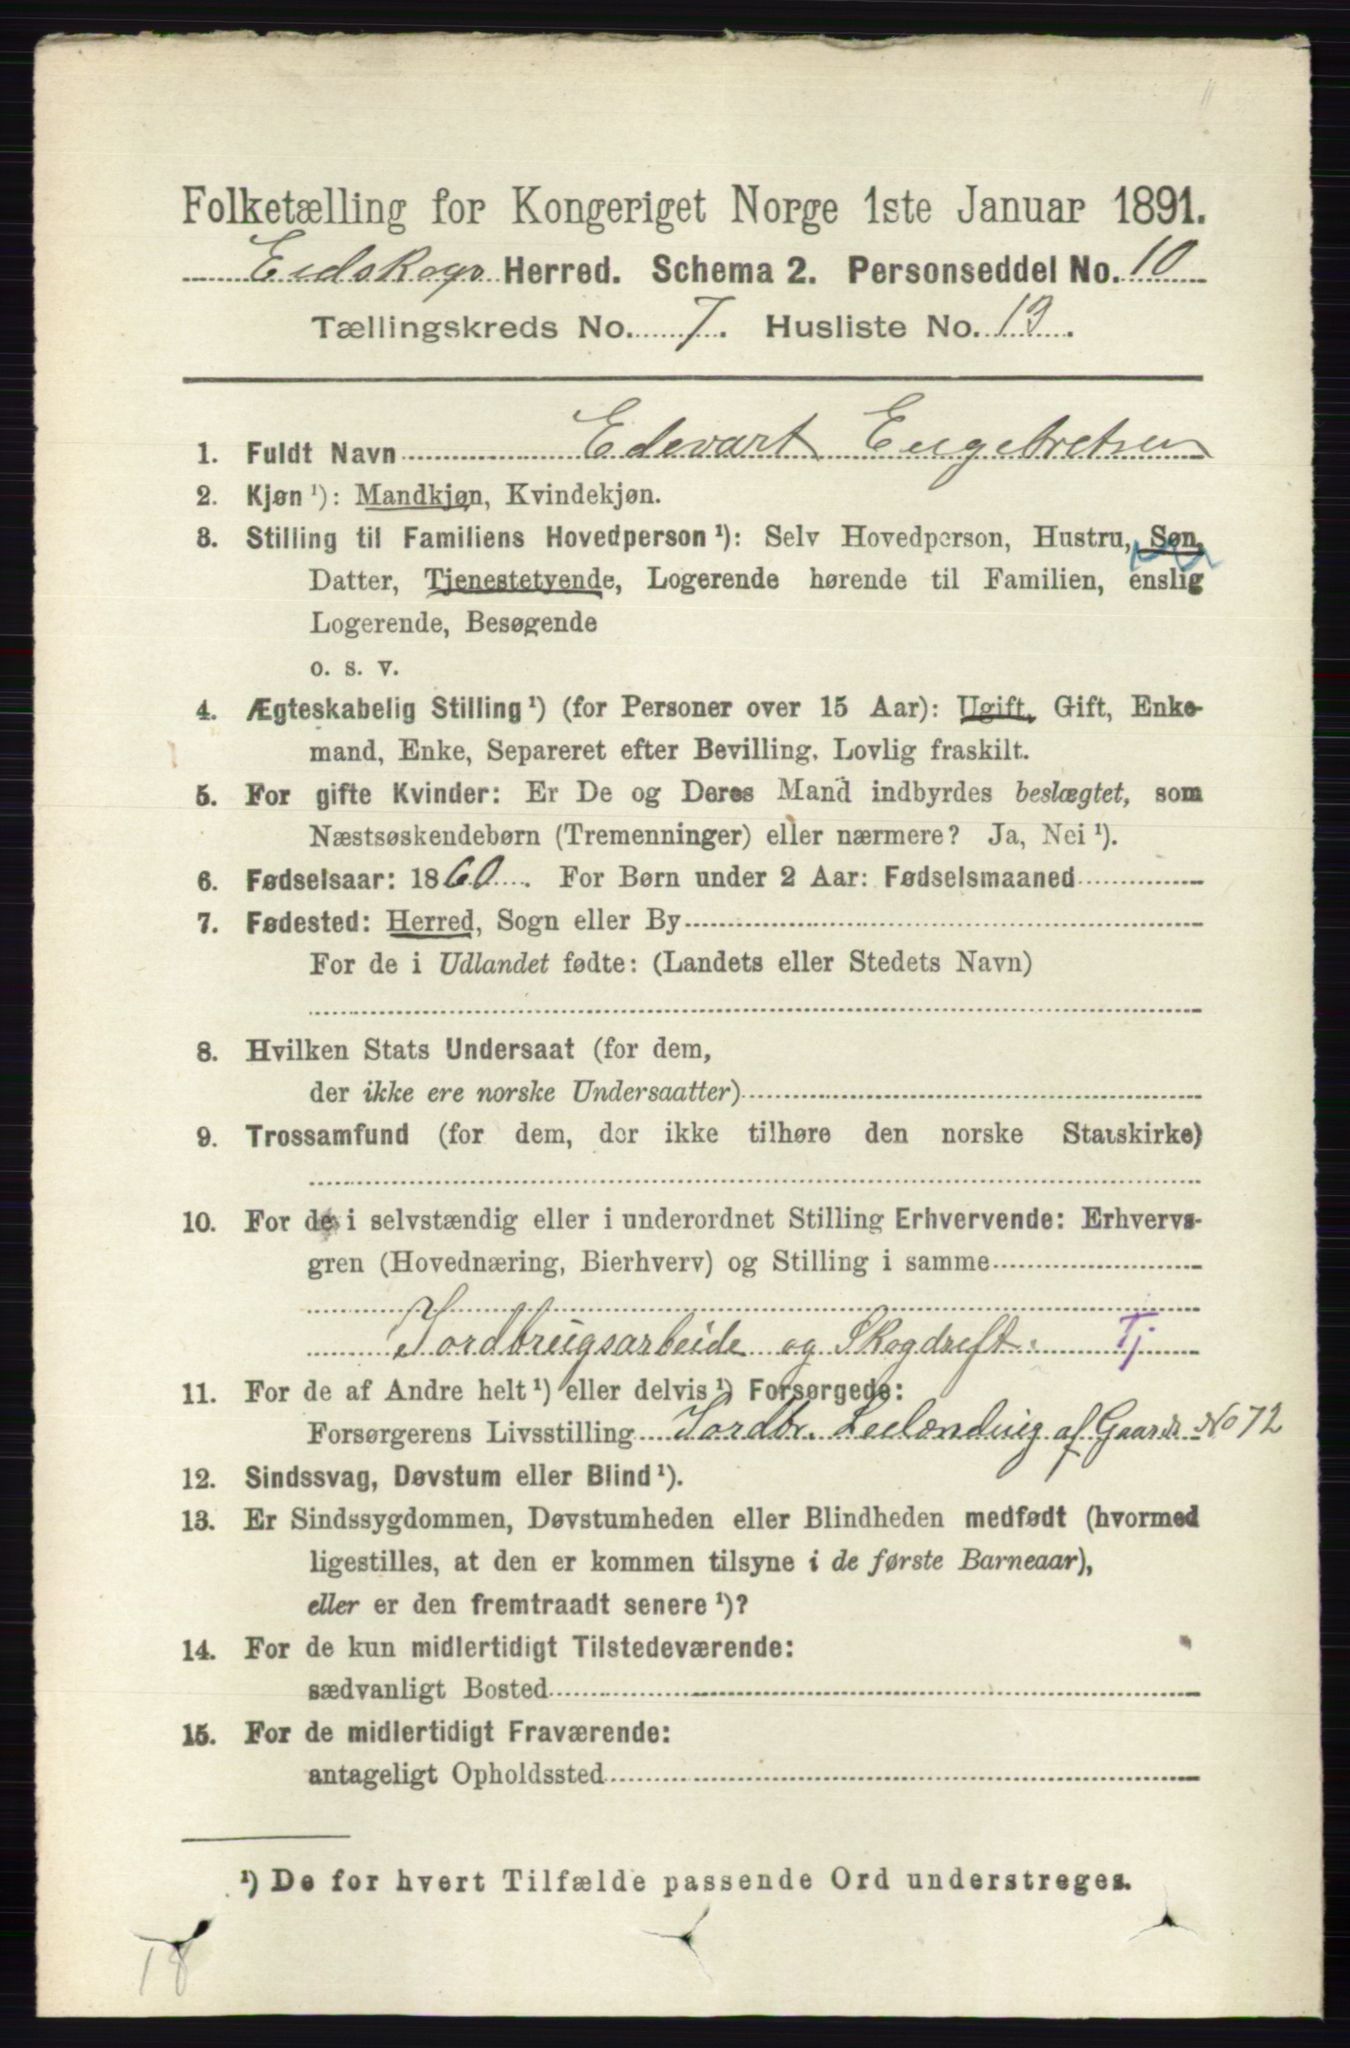 Folketælling for Kongeriget Norge 1ste Januar 1891.
Eidskogs Herred. Schema 2. Personseddel No. 10
Tællingskreds No. 7. Husliste No. 13.
1. Fuldt Navn Edevart Engebretsen
2. Kjøn ¹): Mandkjøn, Kvindekjøn.
3. Stilling til Familiens Hovedperson ¹): Selv Hovedperson, Hustru, Søn,
Datter, Tjenestetyende, Logerende hørende til Familien, enslig
Logerende, Besøgende
o. s. v.
4. Ægteskabelig Stilling ¹) (for Personer over 15 Aar): Ugift, Gift, Enke-
mand, Enke, Separeret efter Bevilling. Lovlig fraskilt.
5. For gifte Kvinder: Er De og Deres Mand indbyrdes beslægtet, som
Næstsøskendebørn (Tremenninger) eller nærmere? Ja, Nei ¹).
6. Fødselsaar: 1860. For Børn under 2 Aar: Fødselsmaaned
7. Fødested: Herred, Sogn eller By
For de i Udlandet fødte: (Landets eller Stedets Navn)
8. Hvilken Stats Undersaat (for dem,
der ikke ere norske Undersaatter)
9. Trossamfund (for dem, der ikke tilhøre den norske Statskirke)
10. For de i selvstændig eller i underordnet Stilling Erhvervende: Erhvervs-
gren (Hovednæring, Bierhverv) og Stilling i samme
Jordbrugsarbeide og Skogdreft. Tj
11. For de af Andre helt ¹) eller delvis ¹) Forsørgede:
Forsørgerens Livsstilling Jordbr. Leilænding af Gaards No 72
12. Sindssvag, Døvstum eller Blind ¹).
13. Er Sindssygdommen, Døvstumheden eller Blindheden medfødt (hvormed
ligestilles, at den er kommen tilsyne i de første Barneaar),
eller er den fremtraadt senere ¹)?
14. For de kun midlertidigt Tilstedeværende:
sædvanligt Bosted
15. For de midlertidigt Fraværende:
antageligt Opholdssted
¹) De for hvert Tilfælde passende Ord understreges.
18